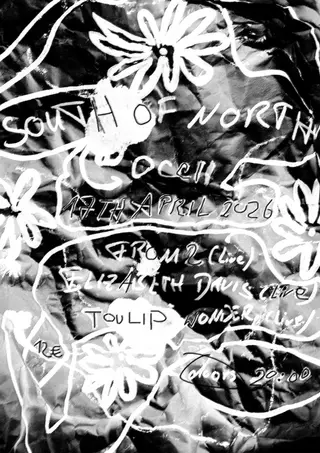 SOUTH OF NORTH
OCCII
17TH APRIL 2026
FROM 2 (Live)
ELIZABETH DAVIS (LIVE)
TOULIP WONDER (Live!)
12€
Doors 20:00